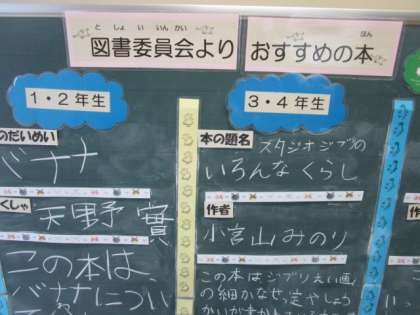 図書委員会より おすすめの本
としょいいんかい ほん
1・2年生
のだいめい
バナナ
くしゃ
天野實
この本は、
バナナについ
3・4年生
本の題名
スタジオジブリの
いろんなくらし
作者
小宮山みのり
この本はジブリえい画
の細かなせっ定やしょう